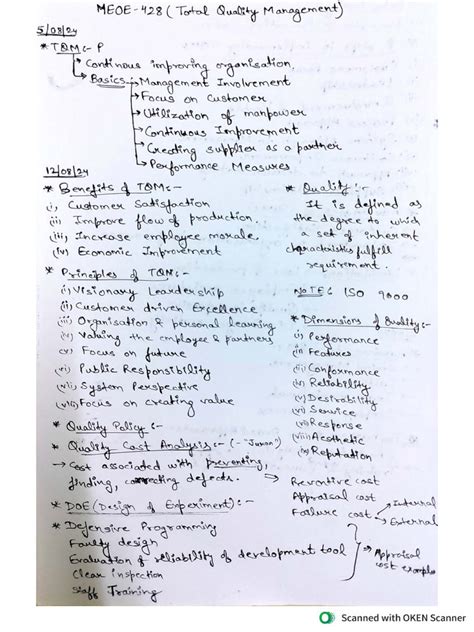 MEOE-428 ( Total Quality Management)
5/08/24
* TQM :- P
→ Continous improving organisation.
→ Basics → Management Involvement
→ Focus on Customer
→ Utilization of manpower
→ Continuous Improvement
→ Creating supplier as a partner
→ Performance Measures
12/08/24
* Benefits of TQM :-
(i) Customer Satisfaction
(ii) Improve flow of production.
(iii) Increase employee morale.
(iv) Economic Improvement
* Principles of TQM :-
(i) Visionary Leardership
(ii) Customer driven Excellence
(iii) Organisation & personal learning
(iv) Valuing the employee & partners
(v) Focus on future
(vi) Public Responsibility
(vii) System Perspective
(viii) Focus on creating value
* Quality Policy :-
* Quality Cost Analysis :- (- Juran)
→ Cost associated with preventing,
finding, correcting defects. →
* DOE (Design of Experiment) :-
* Defensive Programming
Faulty design
Evaluation of reliability of development tool
Clear inspection
Staff Training
* Quality :-
It is defined as
the degree to which
a set of inherent
characteristics fulfill
requirement.
NOTE: ISO 9000
* Dimensions of Quality :-
(i) Performance
(ii) Features
(iii) Conformance
(iv) Reliability
(v) Desirability
(vi) Service
(vii) Response
(viii) Aesthetic
(ix) Reputation
Prevontive cost
Appraisal cost
Failure cost → Internal
→ External
→ Appraisal
cost example
Scanned with OKEN Scanner